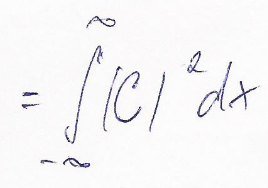 = ∫_{-∞}^{∞} |C|² dx